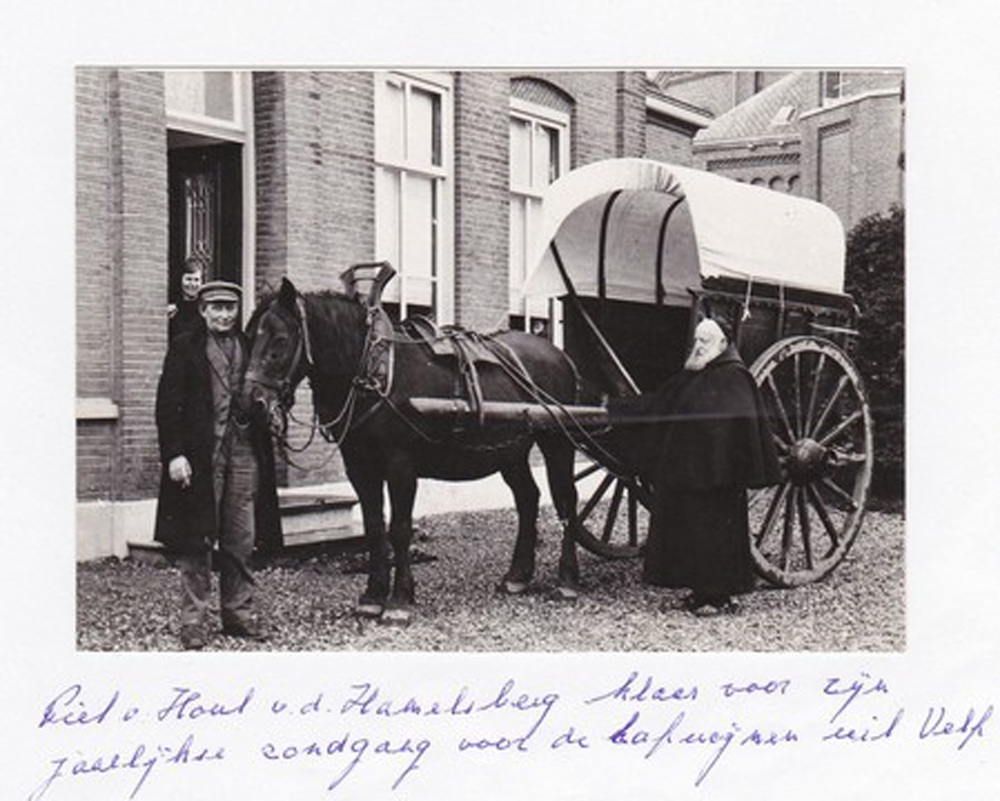 Piet v. Hout v.d. Hamelsberg klaar voor zijn
jaarlijkse rondgang voor de kapucijnen uit Velp